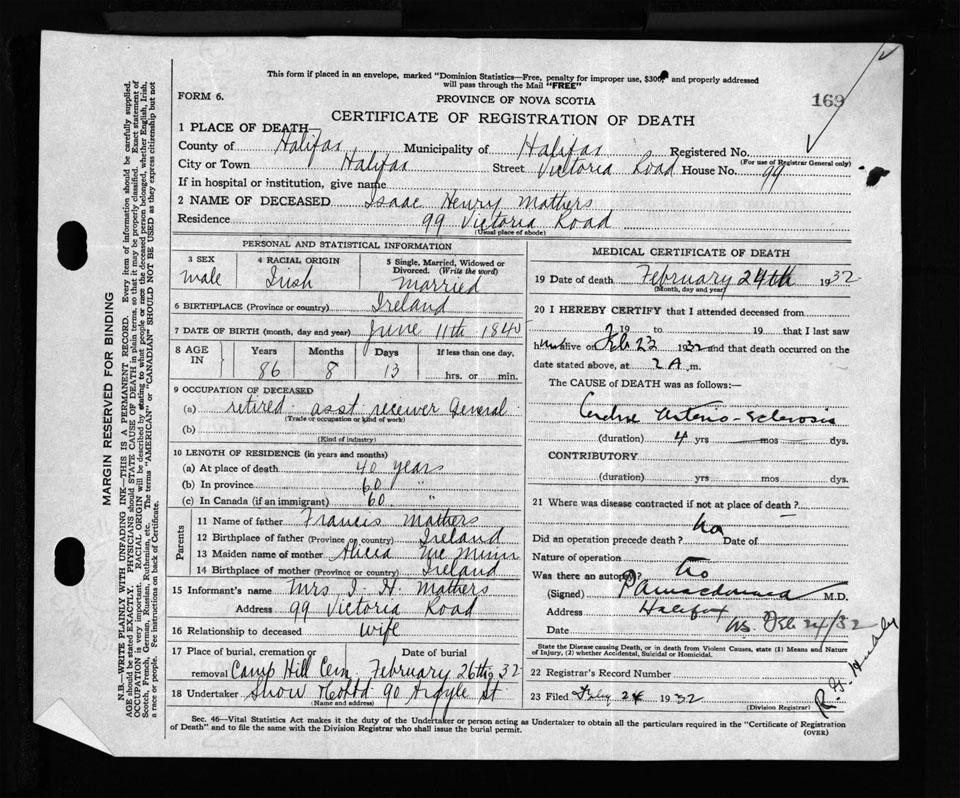 This form if placed in an envelope, marked "Dominion Statistics—Free, penalty for improper use, $300," and properly addressed
will pass through the Mail "FREE"
FORM 6.
PROVINCE OF NOVA SCOTIA
169
CERTIFICATE OF REGISTRATION OF DEATH
1 PLACE OF DEATH—
County of Halifax Municipality of Halifax Registered No.
(For use of Registrar General only)
City or Town Halifax Street Victoria Road House No. 99
If in hospital or institution, give name
2 NAME OF DECEASED Isaac Henry Mathers
Residence 99 Victoria Road
(Usual place of abode)
PERSONAL AND STATISTICAL INFORMATION
3 SEX
male
4 RACIAL ORIGIN
Irish
5 Single, Married, Widowed or
Divorced. (Write the word)
Married
6 BIRTHPLACE (Province or country) Ireland
7 DATE OF BIRTH (month, day and year) June 11th 184
8 AGE
IN
Years
86
Months
8
Days
13
If less than one day,
hrs. or min.
9 OCCUPATION OF DECEASED
(a) retired asst receiver General
(Trade or occupation or kind of work)
(b)
(Kind of industry)
10 LENGTH OF RESIDENCE (in years and months)
(a) At place of death 40 years
(b) In province 60 "
(c) In Canada (if an immigrant) 60 "
Parents
11 Name of father Francis Mathers
12 Birthplace of father (Province or country) Ireland
13 Maiden name of mother Alicia
14 Birthplace of mother (Province or country) Ireland
15 Informant's name Mrs I. H. Mathers
Address 99 Victoria Road
16 Relationship to deceased wife
17 Place of burial, cremation or
removal Camp Hill Cem
Date of burial
February 26th 1932
18 Undertaker Snow & Co Ltd 90 Argyle St
(Name and address)
MEDICAL CERTIFICATE OF DEATH
19 Date of death February 24th 1932
(Month, day and year)
20 I HEREBY CERTIFY that I attended deceased from
19 to 19 that I last saw
him alive on Feb 23 1932 and that death occurred on the
date stated above, at 2 A m.
The CAUSE of DEATH was as follows:—
Arterio-sclerosis
(duration) 4 yrs mos dys.
CONTRIBUTORY
(duration) yrs mos dys.
21 Where was disease contracted if not at place of death?
Did an operation precede death? no Date of
Nature of operation
Was there an autopsy? no
(Signed) M.D.
Address Halifax
Date N.S. Feb 24/32
State the Disease causing Death, or in death from Violent Causes, state (1) Means and Nature
of Injury, (2) whether Accidental, Suicidal or Homicidal.
22 Registrar's Record Number
23 Filed Feby 24 1932
(Division Registrar)
Sec. 46—Vital Statistics Act makes it the duty of the Undertaker or person acting as Undertaker to obtain all the particulars required in the "Certificate of Registration
of Death" and to file the same with the Division Registrar who shall issue the burial permit.
(OVER)
MARGIN RESERVED FOR BINDING
N.B.—WRITE PLAINLY WITH UNFADING INK—THIS IS A PERMANENT RECORD. Every item of information should be carefully supplied.
AGE should be stated EXACTLY. PHYSICIANS should STATE CAUSE OF DEATH in plain terms, so that it may be properly classified. Exact statement of
OCCUPATION is very important. RACIAL ORIGIN will be described by stating to what people or race the deceased person belonged, whether English, Irish,
Scotch, French, German, Russian, Ruthenian, etc. The terms "AMERICAN" or "CANADIAN" SHOULD NOT BE USED as they express citizenship but not
a race or people. See instructions on back of Certificate.